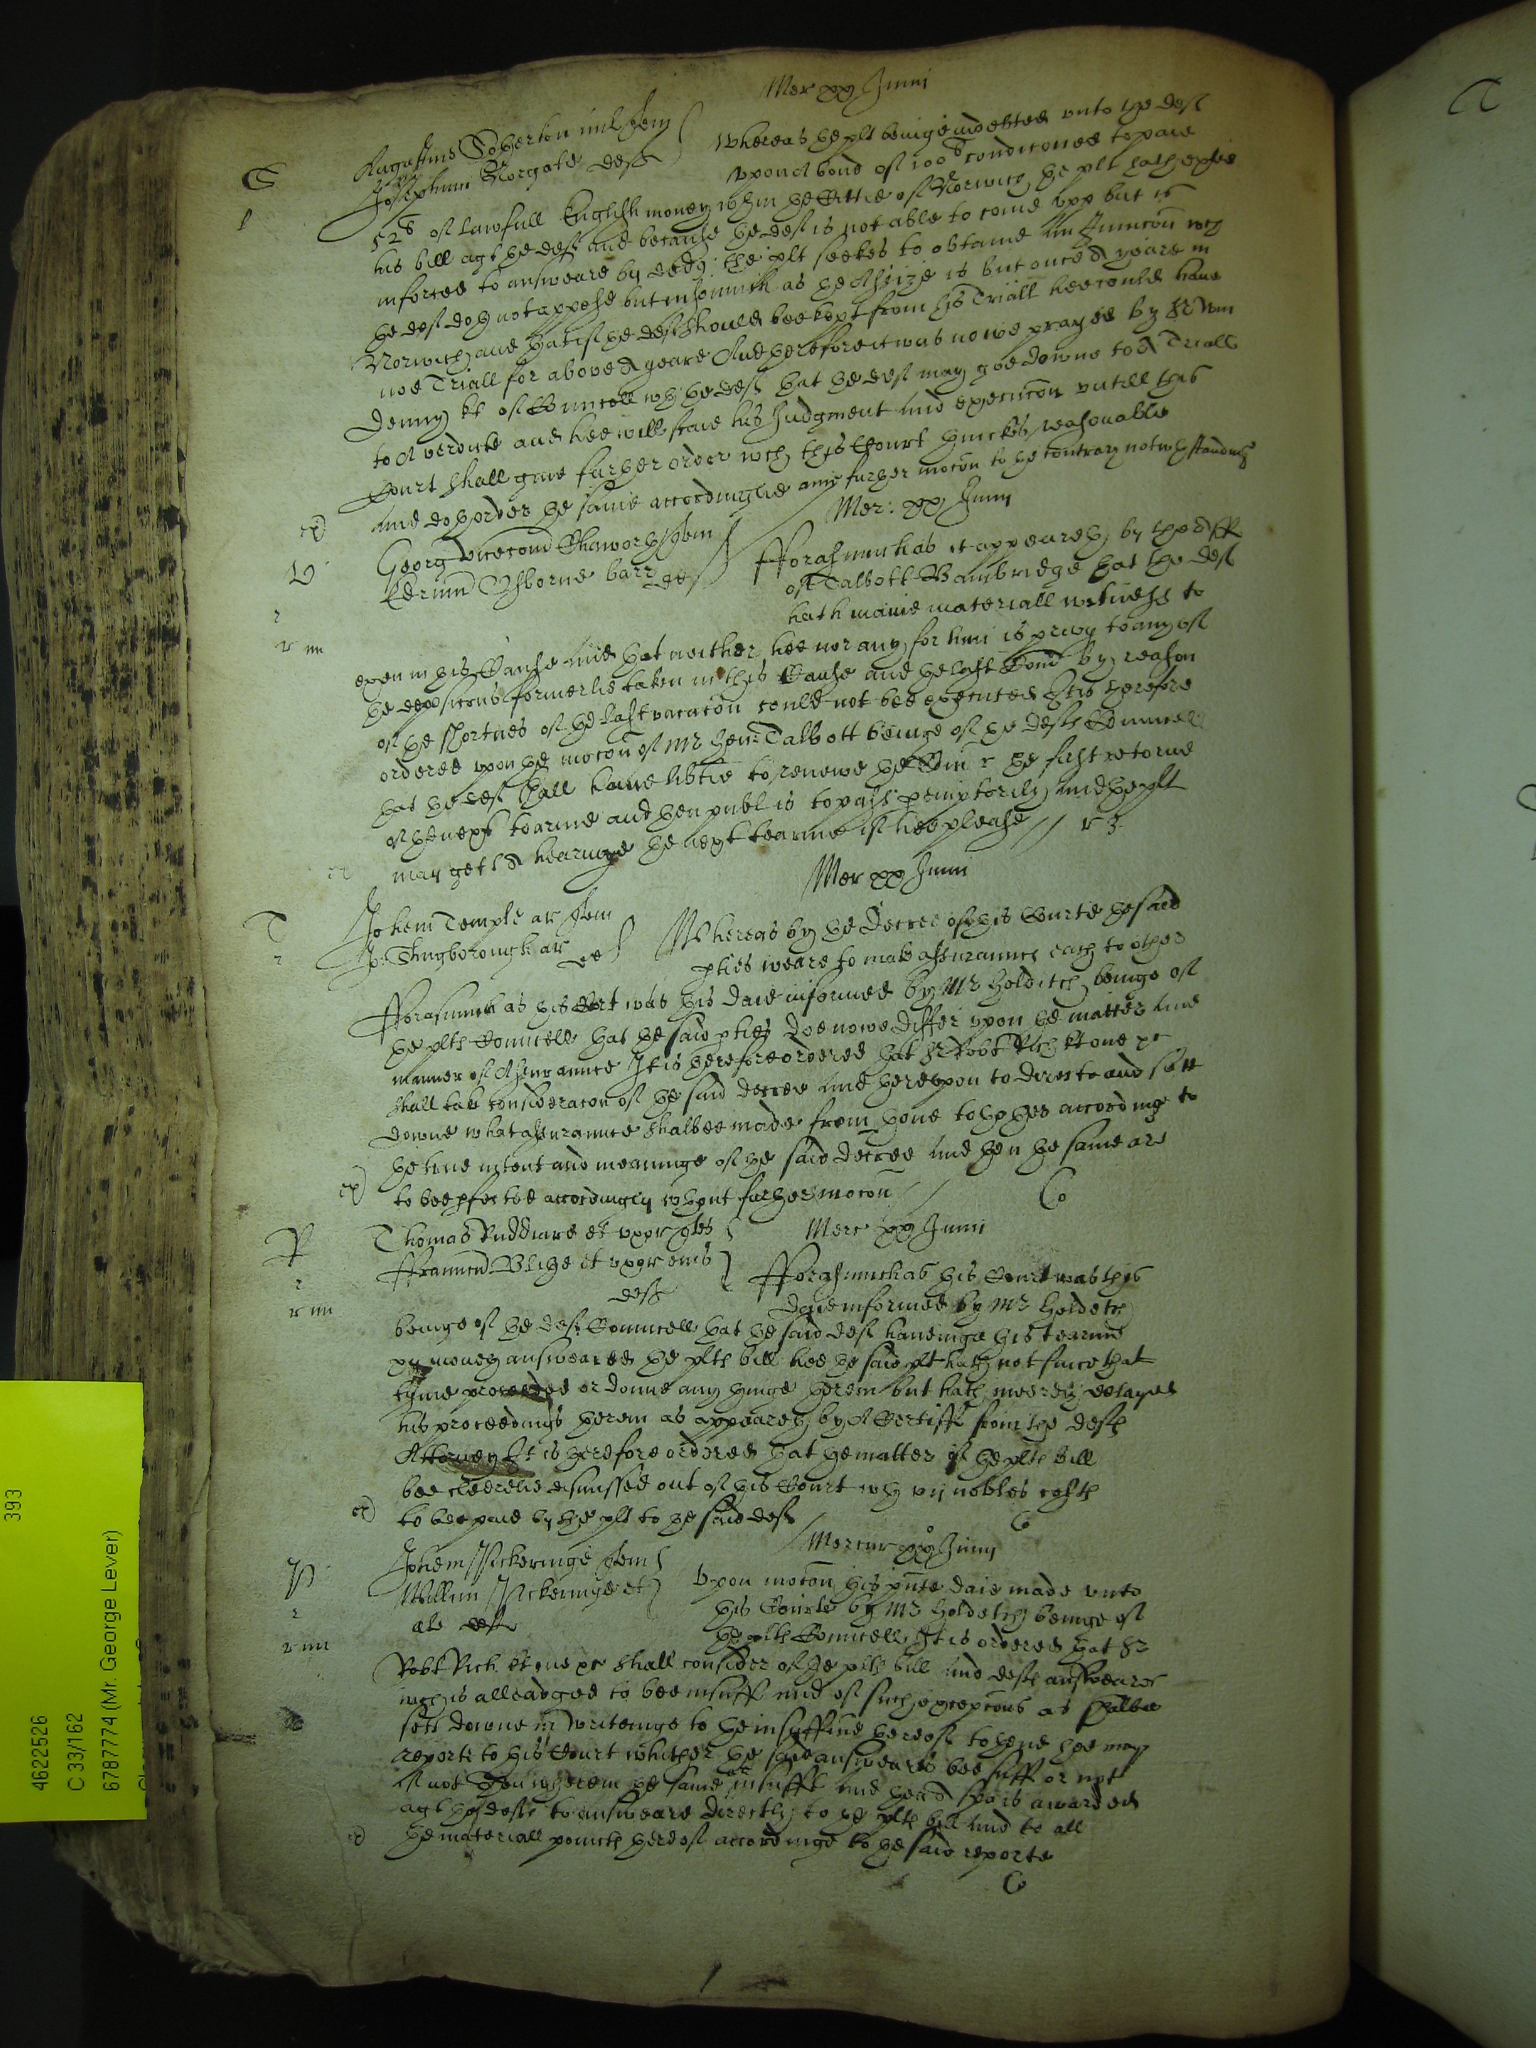 Mer xx Junii
S
Augustine Sotherton mil quer
Josephum Norgate deft
Whereas the plt beinge indebted unto the deft
upon A bond of 100li condiconed to paie
52li of lawfull English money wthin the Cittie of Norwich the plt hath exhi
his bill agt the deft and because the deft is not able to come upp but is
inforced to answeare by the plt seekes to obtaine An Iniunccon wch
the deft doth not appose but insomuch as the Assize is but once A yeare in
Norwich and that if the deft should bee kept from his Triall hee could have
noe Triall for above A yeare And therefore it was nowe prayed by Sr Wm
Denny kt of Councell wth the deft that the deft may goe downe to A Triall
to A verdicte and hee will staie his Judgment And execucon untill this
Court shall give further order wch this Court thinckes reasonable
And doth order the same accordinglie anie further mocon to the contrary notwthstandinge
Mer: xx Junii
Georg vicecom Chaworth quer
Edmund Osborne barr def
fforasmuch as it appeareth by the Aff
of Talbott Bambridge that the deft
hath manie materiall witness to
exen in this Cause And that neither hee nor any for him is privy to any of
the deposicons formerlie taken in this Cause and the last Comn by reason
of the shortnes of the last vacacon could not bee executed It is therefore
ordered upon the mocon of Mr Hen: Talbott beinge of the defts Councell
that the deft shall have libtie to renewe the Comn r the first retorne
of the next tearme and then publ is to passe pemptorily And the plt
may gett A hearinge the next tearme if hee please // r 3
Mer xx Junii
T
Johem Temple ar quer
Jo: Thugborough ar def
Whereas by the Decree of this Courte the said
pties weare to make assurannce each to other
fforasmuch as this Cort was this daie informed by Mr Holditch beinge of
the plts Councell that the said pties doe nowe differ upon the matter And
manner of Assurannce It is therefore ordered that Sr Robt Rich kt one &c
shall take consideracon of the said decree And thereupon to directe and sett
downe what assurannce shalbee made from thone to thother accordinge to
the true intent and meaninge of the said decree And then the same are
to bee pfected accordingly wthout further mocon // Co
R
Thomas Ruddiare et uxor quer
Merc xx Junii
ffranncu Blithe et uxor eius
deft
fforasmuch as this Court was this
daie informed by Mr Holdetch
beinge of the deft Councell that the said deft haveinge this tearme
answeared the plts bill hee the said plt hath not since that
tyme proceeded or donne any thinge therein but hath meerely delayed
his proceedings therein as appeareth by A Certiff from the defts
Attorney It is therefore ordered that the matter of the plts bill
bee cleerelie dismissed out of this Court wth vij nobles costs
to bee paid by the plt to the said deft / Co
Mercur xxo Junii
P
Johem Pickeringe quer
Willm Pickeringe et
als deft
Upon mocon this pnte daie made unto
this Courte by Mr Holdetch beinge of
the plts Councell It is ordered that Sr
Robt Rich kt one &c shall consider of the plts bill And defts answeare
wch is alleadged to bee insuff and of such excepcons as shalbee
sett downe in Writeinge to the insuffine thereof to thend hee may
reporte to this Court whither the said answeare bee suff or not
if not then wherein the same is insuff And then A spa is awarded
agt the defts to answeare directly to the plts bill And to all
the materiall pointes thereof accordinge to the said reporte
Co
4622526 393
C 33/162
6787774 (Mr. George Lever)